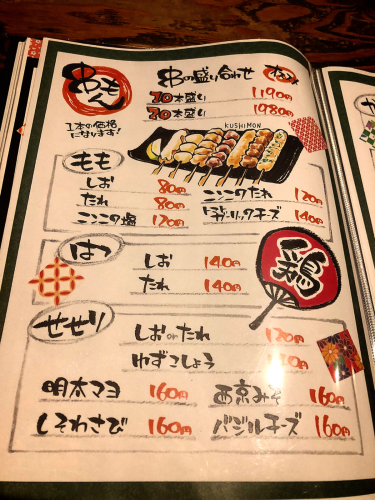 串もん
1本の価格
になります!
串の盛り合わせ
10本盛り 1190円
20本盛り 1980円
KUSHIMON
もも
しお 80円
たれ 80円
にんにくの塩 120円
にんにくのたれ 120円
ガーリックチーズ 140円
はつ
しお 140円
たれ 140円
鶏
せせり
しおorたれ 120円
ゆずこしょう
明太マヨ 160円
西京みそ 160円
しそわさび 160円
バジルチーズ 160円